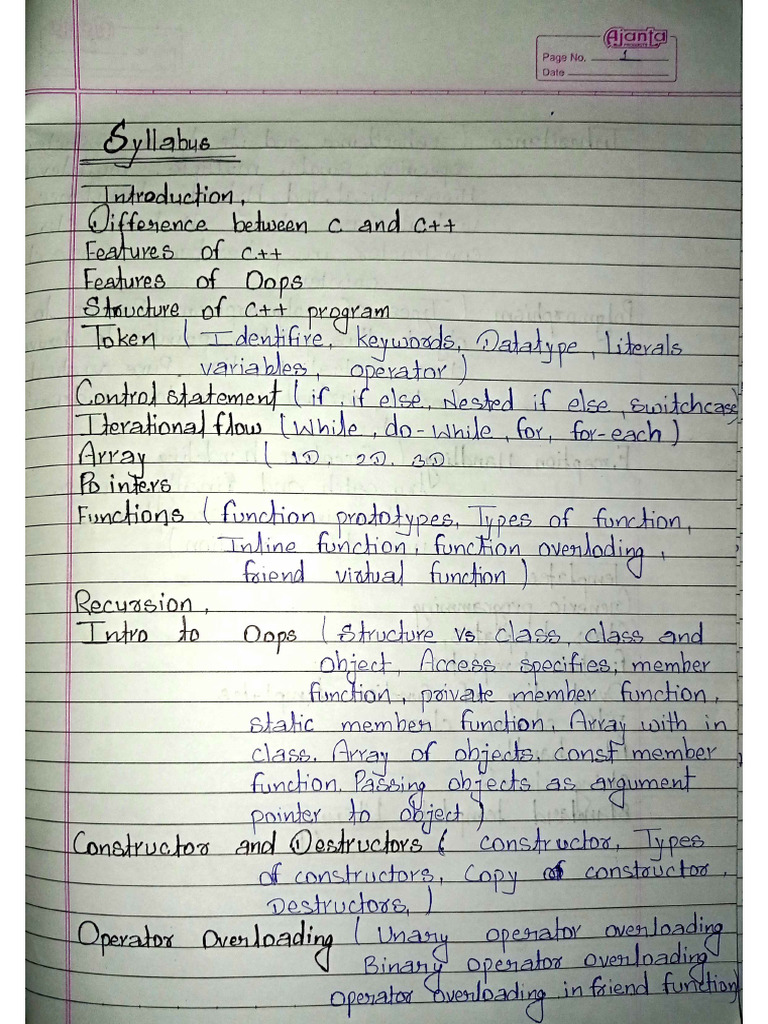 Ajanta
Page No. 1
Date
Syllabus
Introduction,
Difference between C and C++
Features of C++
Features of Oops
Structure of C++ program
Token (Identifire, keywords, Datatype, literals
variables, operator)
Control statement (if, if else, Nested if else, switchcase)
Iterational flow (While, do-while, for, for-each)
Array (1D, 2D, 3D
Pointers
Functions (function prototypes, Types of function,
Inline function, function overloding,
friend virtual function)
Recursion,
Intro to Oops (Structure vs class, class and
object, Access specifies, member
function, private member function,
static member function, Array with in
class. Array of objects. const member
function. Passing objects as argument
pointer to object)
Constructor and Destructors ( constructor, Types
of constructors, Copy constructor,
Destructors,)
Operator Overloading (Unary operator overloading
Binary operator overloading
operator overloading in friend function)